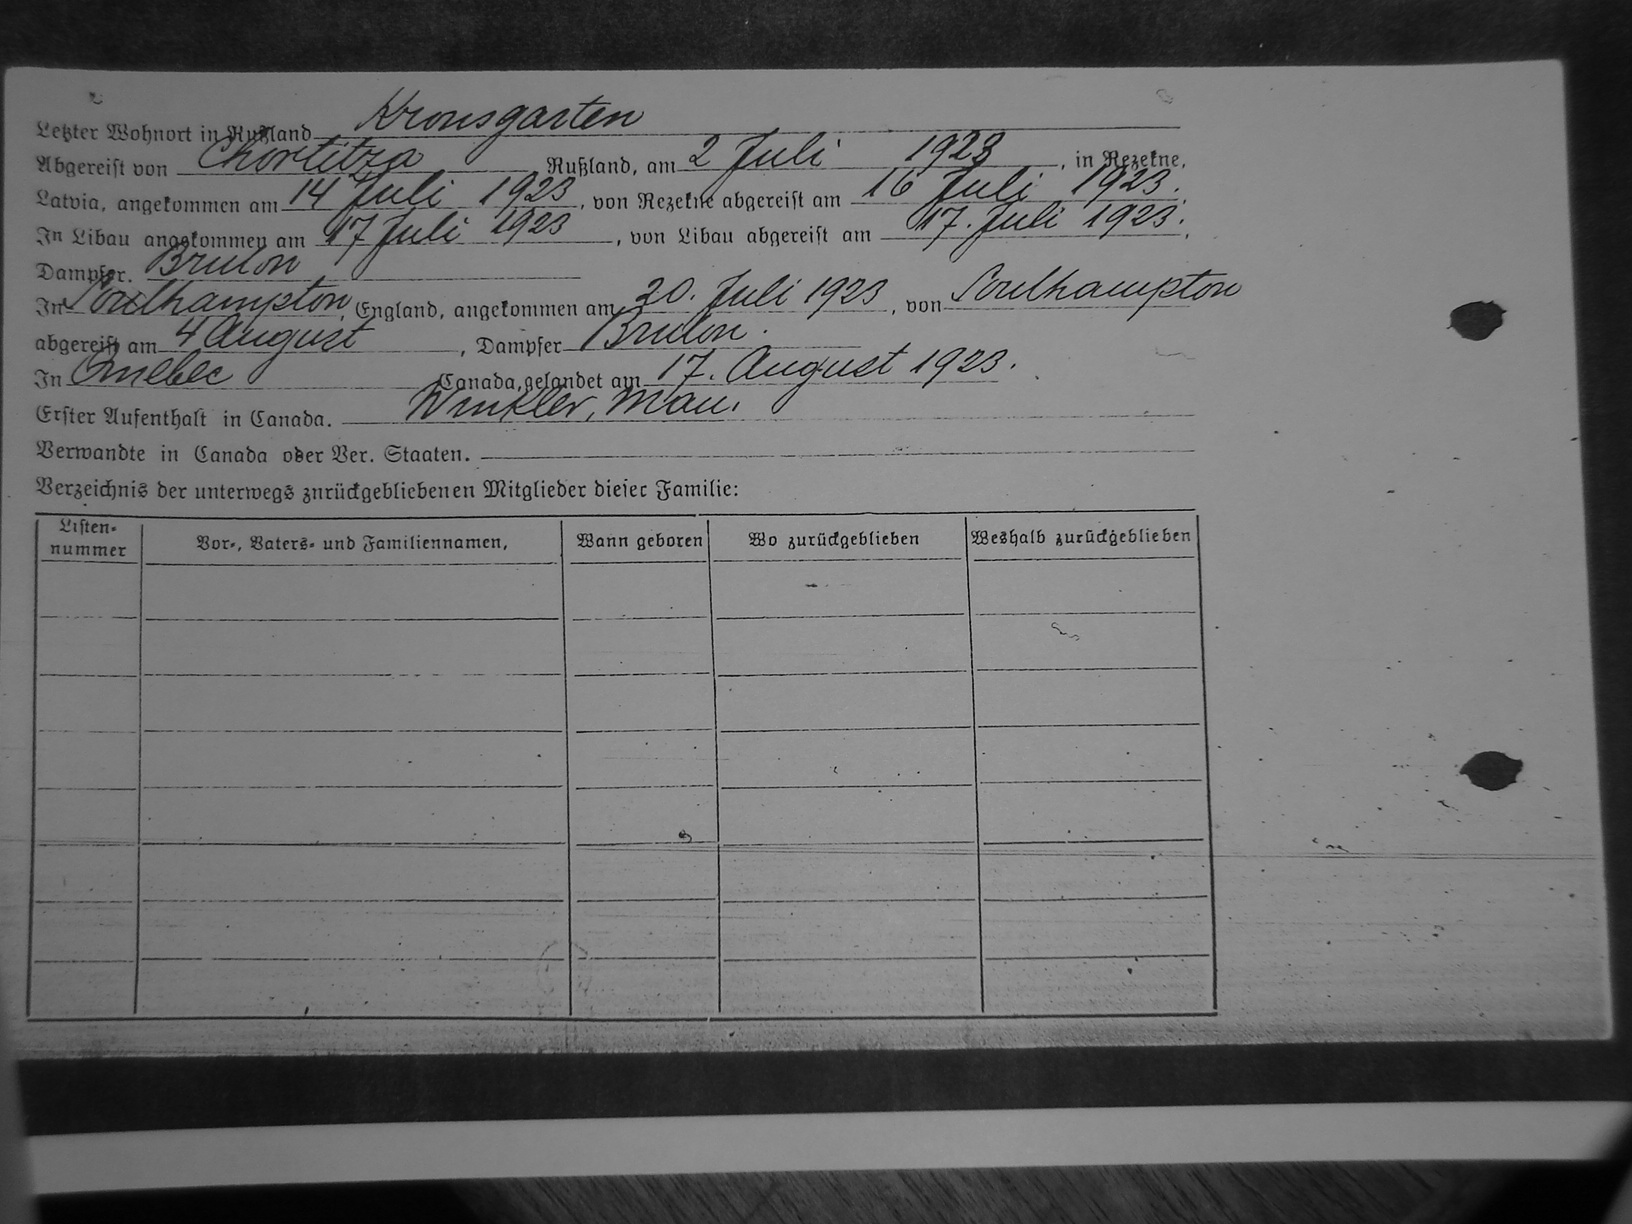 Letzter Wohnort in Rußland Kronsgarten
Abgereist von Chortitza Rußland, am 2 Juli 1923, in Rezekne,
Latvia, angekommen am 14 Juli 1923, von Rezekne abgereist am 16 Juli 1923.
In Libau angekommen am 17 Juli 1923, von Libau abgereist am 17. Juli 1923.
Dampfer. Bruton
In Southampton, England, angekommen am 20. Juli 1923, von Southampton
abgereist am 4 August, Dampfer Bruton.
In Quebec Canada, gelandet am 17. August 1923.
Erster Aufenthalt in Canada. Winkler, Man.
Verwandte in Canada oder Ver. Staaten.
Verzeichnis der unterwegs znrückgebliebenen Mitglieder dieser Familie:
Listen-nummer Vor-, Vaters- und Familiennamen, Wann geboren Wo zurückgeblieben Weshalb zurückgeblieben